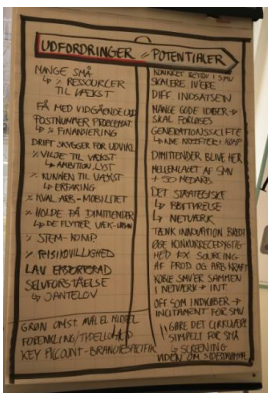 UDFORDRINGER // POTENTIALER
MANGE SMÅ
↳ % RESSOURCER
TIL VÆKST
FÅ MED VIDGÅENDE UD
POSTNUMMER PROBLEMAT.
↳ % FINANSIERING
DRIFT SKYGGER FOR UDVIKL
% VILJE TIL VÆKST
↳ AMBITION, LYST
% KUNNEN TIL VÆKST
↳ ERFARING
% KVAL. ARB-MOBILITET
% HOLDE PÅ DIMITTENDER
↳ DE FLYTTER VÆK
% STEM-KOMP
% RISIKOVILLIGHED
LAV EKSPORTGRAD
SELVFORSTÅELSE
↳ JANTELOV
GRØN OMST. MÅL EL. MIDDEL
FORENKLING/TYDELIGHED
KEY ACCOUNT - BRANCHESPECIFIK
KONKRET BEHOV I SMV
SKALERE IVÆRK
DIFF INDSATSEN
MANGE GODE IDEER →
SKAL FORLØSES
GENERATIONSSKIFTE
DIMITTENDER BLIVE HER
MELLEMLAGET AF SMV
+ 50 MEDARB.
DET STRATEGISKE
↳ BESTYRELSE
↳ NETVÆRK
TÆNK INNOVATION BREDT
ØGE KONKURRENCEDYGTIG
MED SOURCING
AF PROD OG ARB KRAFT
KOBLE SMV'ER SAMMEN
I NETVÆRK + INT
OFF SOM INDKØBER →
INCITAMENT FOR SMV
GØRE DET CIRKULÆRE
SIMPELT FOR SMÅ
↳ SCREENING
VIDEN OM SIDESTRØMME